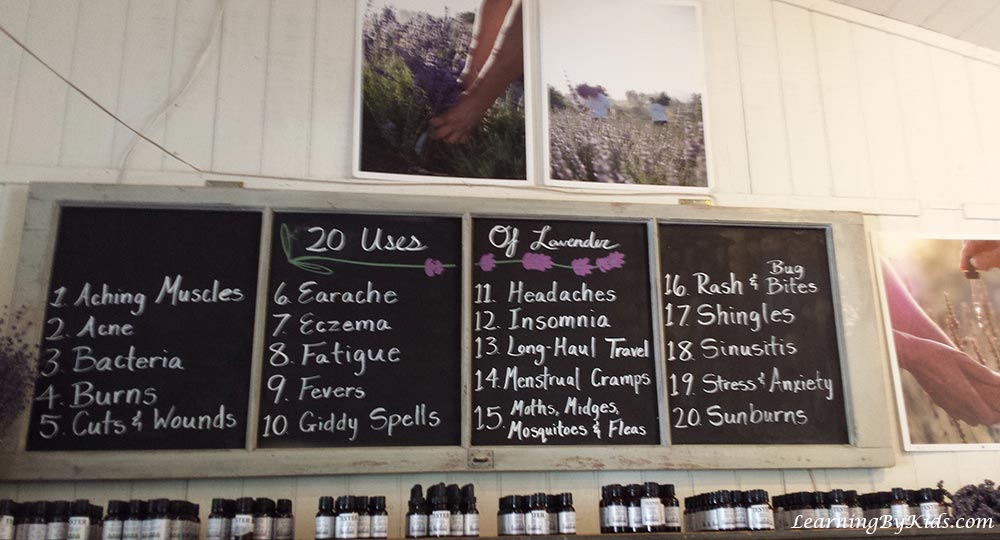 20 Uses Of Lavender
1. Aching Muscles
2. Acne
3. Bacteria
4. Burns
5. Cuts & Wounds
6. Earache
7. Eczema
8. Fatigue
9. Fevers
10 Giddy Spells
11. Headaches
12. Insomnia
13. Long-Haul Travel
14. Menstrual Cramps
15. Moths, Midges,
Mosquitoes & Fleas
16. Rash & Bug
Bites
17. Shingles
18. Sinusitis
19. Stress & Anxiety
20. Sunburns
TESTER
LearningByKids.com